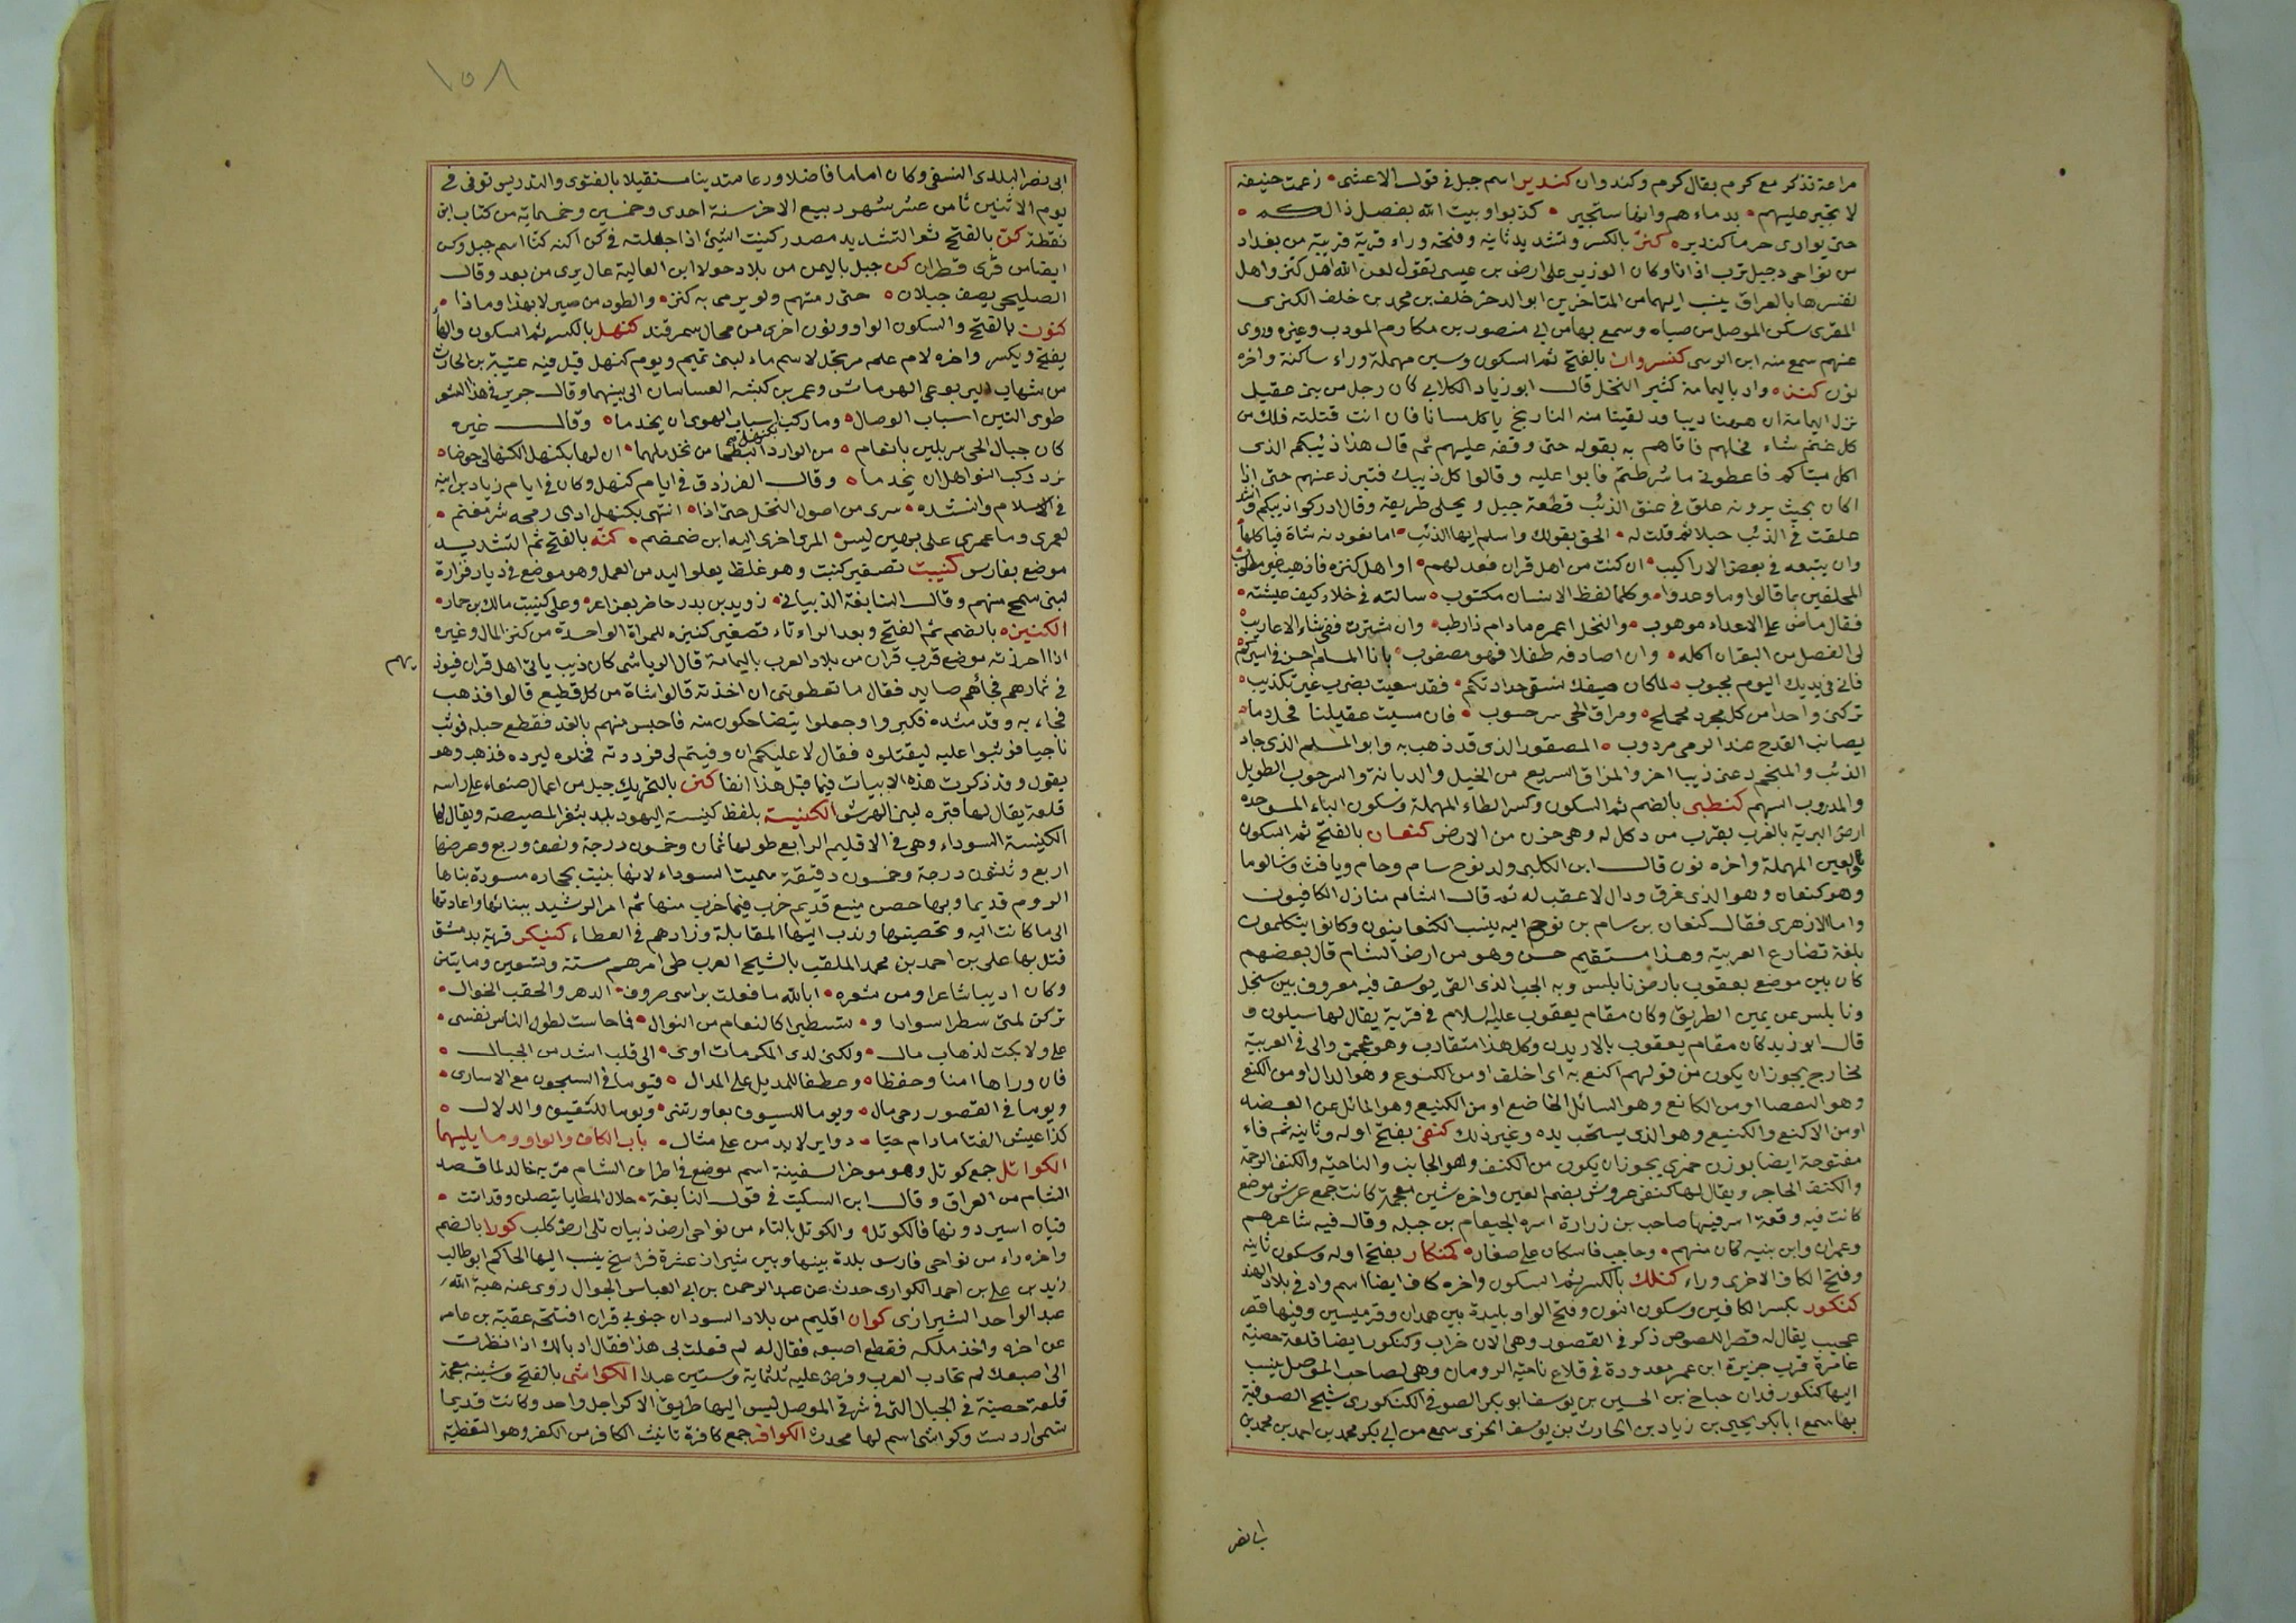 مراعة تذكر مع كرم يقال كرم وكندوان كندير اسم جبل في قول الاعشى زعمت حنيفة
لا تجير عليهم بدماءهم وانها ستجير كذبوا وبيت الله يفصل ذالكم
حتى يوازى حرما كندير كنر بالكسر وتشديد ثانيه وفتحه وراء قرية قريبة من بغداد
من نواحى دجيل قرب اذانا وكان الوزير على ارض بن عيسى تقول لعن الله اهل كنر واهل
نفر بها بالعراق ينسب اليها من المتاخرين ابو الدحر خلف بن محمد بن خلف الكنرى
المقرى سكن الموصل من صباه وسمع بها من ابى منصور بن مكارم المودب وغيره وروى
عنهم سمع منه ابن الرسى كنسروان بالفتح ثم السكون وسين مهملة وراء ساكنة واخره
نون كنزه واد باليمامة كثير النخل قال ابو زياد الكلابى كان رجل من بنى عقيل
نزل اليمامة ان ههنا ذيبا قد لقينا منه التاريخ ياكل مسانا فان انت قتلته فلك من
كل غنم شاء فخلهم فاتاهم به بقوله حتى وقفه عليهم ثم قال هذا ذئيبكم الذى
اكل مساكم فاعطونى ما شرطتم فابوا عليه وقالوا كل ذيبك فتبرز عنهم حتى اذا
اكان بحيث يرونه علق فى عنق الذئب قطعة حبل ويحلى طريقه وقال ادركوا ذيبكم وانشد
علقت فى الذئب حبلا ثم قلت له الحق بقولك واسلم ايها الذئب اما نعود نه شاة فياكلها
وان يتبعه فى بعض الاراكيب ان كنت من اهل قران فعد لهم او اهل كنزه فاذهب غير مطلوب
المخلفين بما قالوا وما وعدوا وكلما لفظ الانسان مكتوب سالته فى خلاء كيف عيشته
فقال ماض على الاعداء موهوب والنخل اعمره مادام ذا رطب وان شتوت ففى شاء الاعاريب
لى الفصل من البقران اكله وان اصادفه طفلا فهو مصقوب يا نا المسلم احسن فى اسيركم
فانى فى يديك اليوم مجبوب لما كان ضيفك ننسقى جدادتكم فقد سعيت بضرب غير تكذيب
تركنى واحدا من كل مجرد محملج ومراق الحى سرحوب فان مسيت عقيلنا فحل دما
يصائب القدح عند الرمى مردوب المصقور الذى قد ذهب به وابو المسلم الذى جاد
الذئب والمنجم دعنى ذيبا اخر والمزاق السريع من الخيل والديانة والسرحوب الطويل
والمدروب السهم كنطبى بالضم ثم السكون وكسر الطاء المهملة وسكون الباء الموحده
ارض البرية بالغرب بقرب من دكل له وهى حزن من الارض كنعان بالفتح ثم السكون
والعين المهملة واخره نون قال ابن الكلبى ولد نوح سام وحام ويافث وشالوما
وهو كنعان وهو الذى غرق ودال لا عقب له ثم قال الشام منازل الكافيون
واما الازهرى فقال كنعان بن سام بن نوح اليه ينسب الكنعانيون وكانوا يتكلمون
بلغة تضارع العربية وهذا مستقيم حسن وهو من ارض الشام قال بعضهم
كان بين موضع يعقوب بارض نابلس وبه الجب الذى القى يوسف فيه معروف بين سنجل
ونابلس عن يمين الطريق وكان مقام يعقوب عليه السلام فى قرية يقال لها سيلون و
قال ابو زيد كان مقام يعقوب بالاردن وكل هذا متقارب وهو عجمى والى فى العربية
مخارج يجوز ان يكون من قولهم اكنع به اى اخلف او من الكنوع وهو الدال او من الكنع
وهو النقصا او من الكانع وهو السائل الخاضع او من الكنيع وهو المائل عن القصد
او من الاكنع والكنيع وهو الذى يسحب يده وغير ذلك كنفى بفتح اوله وثانيه ثم فاء
مفتوحة ايضا بوزن جمزى يجوز ان يكون من الكنف وهو الجانب والناحية والكنف الرحمة
والكنف الحاجر ويقال لها كنفى عروش بضم العين واخره شين معجمة كانت جمع عرش موضع
كانت فيه وقعة اسر فيها صاحب بن زرارة اسره الجمعام بن جبلة وقال فيه شاعرهم
وعمران وابن بنيه كان منهم وحاجب فاسكان على صفار كنكار بفتح اوله وسكون ثانيه
وفتح الكاف الاخرى وراء كنلك بالكسر ثم السكون واخره كاف ايضا اسم واد فى بلاد الهند
كنكور بكسر الكافين وسكون النون وفتح الواو بليدة بين همدان وقرميسين وفيها قصر
عجيب يقال له قصر اللصوص ذكر فى القصور وهى الان خراب وكنكور ايضا قلعة حصينة
عامرة قرب جزيرة ابن عمر معدودة فى قلاع ناحية الزوزان وهى لصاحب الموصل ينسب
اليها كنكور فدان جباخ بن الحسين بن يوسف ابو بكر الصوفى الكنكورى شيخ الصوفية
بها سمع ابا بكر يحيى بن زياد بن الحارث بن يوسف الحزى سمع من ابى بكر محمد بن احمد بن محمد بن
ابى نصر
١٥٨
ابى نصر البلدى النسفى وكان اماما فاضلا ورعا متدينا مستقيلا بالفتوى والتدريس توفى فى
يوم الاثنين ثامن عشر شهر ربيع الاخر سنة احدى وخمسين وخمسماية من كتاب ابن
نقطة كن بالفتح ثم التشديد مصدر كنيت الشيئ اذا جعلته فى كن اكنه كنا اسم جبل وكن
ايضا من قرى قطران كن جبل باليمن من بلاد خولان العالية عال يرى من بعد وقال
الصليحى يصف جبلان حتى رمتهم ولو يرمى به كنن والطود من صبر لا بهذا وماذا
كنون بالفتح والسكون الواو ونون اخرى من محال سمرقند كنهل بالكسر ثم السكون والهاء
يفتح ويكسر واخره لام علم مرتجل لاسم ماء لبنى تميم ويوم كنهل قتل فيه عتيبة بن الحارث
من شهاب اليربوعى الهرماس وعمر بن كبشة الغساسان الى بينهما وقال جرير فى هذا الشعر
طوى التين اسباب الوصال وما ركبت بكنهل اسباب الهوى ان يخدما وقال غيره
كان جبال الحى سربلين بانعام من الوارد البطحا من نخل ملهما ان لها بكنهل الكنهالى حوضا
نرد ركب النواهل ان يخدما وقال الفرزدق فى ايام كنهل وكان فى ايام زياد بن ابيه
فى الاسلام وانشده سرى من اصول النخل حتى اذا انتهى بكنهل ادى رمحه شر مغنم
لعمرى وما عمرى على بهين لبس المرى اخرى اليه ابن ضمضم كنه بالفتح ثم التشديد
موضع بفارس كنيبت تصغير كنبت وهو غلظ يعلو اليد من العمل وهو موضع فى ديار فزارة
لبنى شمخ منهم وقال النابغة الذبيانى زويد بن بدر حاضر بعراعر وعلى كنيبت مالك بن حمار
الكنيزه بالضم ثم الفتح وبعد الراء تاء تصغير كنيزه للمراة الواحدة من كنز المال وغيره
اذا احرزته موضع قرب قران من بلاد العرب باليمامة قال الرياشى كان ذيب ياتى اهل قران فيوذيهم
فى ثمارهم فجاءهم صايد فقال ما تعطونى ان اخذته قالوا شاة من كل قطيع قالوا فذهب
فجاء به وقد شده فكبروا وجعلوا يتضاحكون منه فاحبس منهم بالغد فقطع حبله فوثب
ناجيا فوثبوا عليه ليقتلوه فقال لا عليكم ان وفيتم لى فرددته فخلوه ليرده فذهب وهو
يقول وقد ذكرت هذه الابيات فيما قبل هذا انفا كنن بالتحريك جبل من اعمال صنعاء على راسه
قلعة يقال لها قبره لبنى الهرش الكنيسة بلفظ كنيسة اليهود بلد بثغر المصيصة ويقال لها
الكنيسة السوداء وهى فى الاقليم الرابع طولها ثمان وخمسون درجة ونصف وربع وعرضها
اربع وثلثون درجة وخمسون دقيقة سميت السوداء لانها بنيت بحجارة مسودة بناها
الروم قديما وبها حصن منيع قديم خرب فيما خرب منها ثم امر الرشيد ببنائها واعادتها
الى ما كانت اليه وتحصينها وندب اليها المقابلة وزادهم فى العطاء كنيكر قرية بدمشق
قتل بها على بن احمد بن محمد الملقب بالشيخ العرب طى امرهم ستة وتسعين ومايتين
وكان اديبا شاعرا ومن شعره ابا لله ما فعلت براسى صروف الدهر والحقب الخوال
تركن لمتى سطرا سوادا و شطيرا كالنعام من النوال فحاحاست لطول الناس نفسى
على ولا بكت لذهاب مال ولكنى لدى المكرمات اوى الى قلب اشد من الجبال
فان وراها امنا وحفظا وعطفا للمديل على المدال فيوما فى السجون مع الاسارى
ويوما فى القصور رحى مال ويوما للسيوف بعاورتنى ويوما للتقيق والدلال
كذا عيش الفتا ما دام حيا دواير لا يد من على مثال باب الكاف والواو وما يليهما
الكواثل جمع كوثل وهو موخر السفينة اسم موضع فى اطراف الشام مر به خالد لما قصد
الشام من العراق وقال ابن السكيت فى قول النابغة خلال المطايا يتصلن وقد اتت
قياه اسير دونها فالكوثل والكوثل بالتاء من نواحى ارض ذبيان تلى ارض كلب كورا بالضم
واخره راء من نواحى فارس بلدة بينها وبين شيراز عشرة فراسخ ينسب اليها الحاكم ابو طالب
زيد بن على بن احمد الكوارى حدث عن عبد الرحمن بن ابى العباس الجوال روى عنه هبة الله
عبد الواحد الشيرازى كوان اقليم من بلاد السودان جنوبى قران افتتحه عقبة بن عامر
عن اخره واخذ ملكه فقطع اصبعه فقال له لم فعلت بى هذا فقال ادبا لك اذا نظرت
الى اصبعك لم تحارب العرب وفرض عليه ثلثماية وستين عبدا الكواشى بالفتح وشينه معجمة
قلعة حصينة فى الجبال التى فى شرقى الموصل ليس اليها طريق الا كراجل واحد وكانت قديما
تسمى اردمت وكواشى اسم لها محدث الكوافر جمع كافرة تانيث الكافر من الكفر وهو التغطية